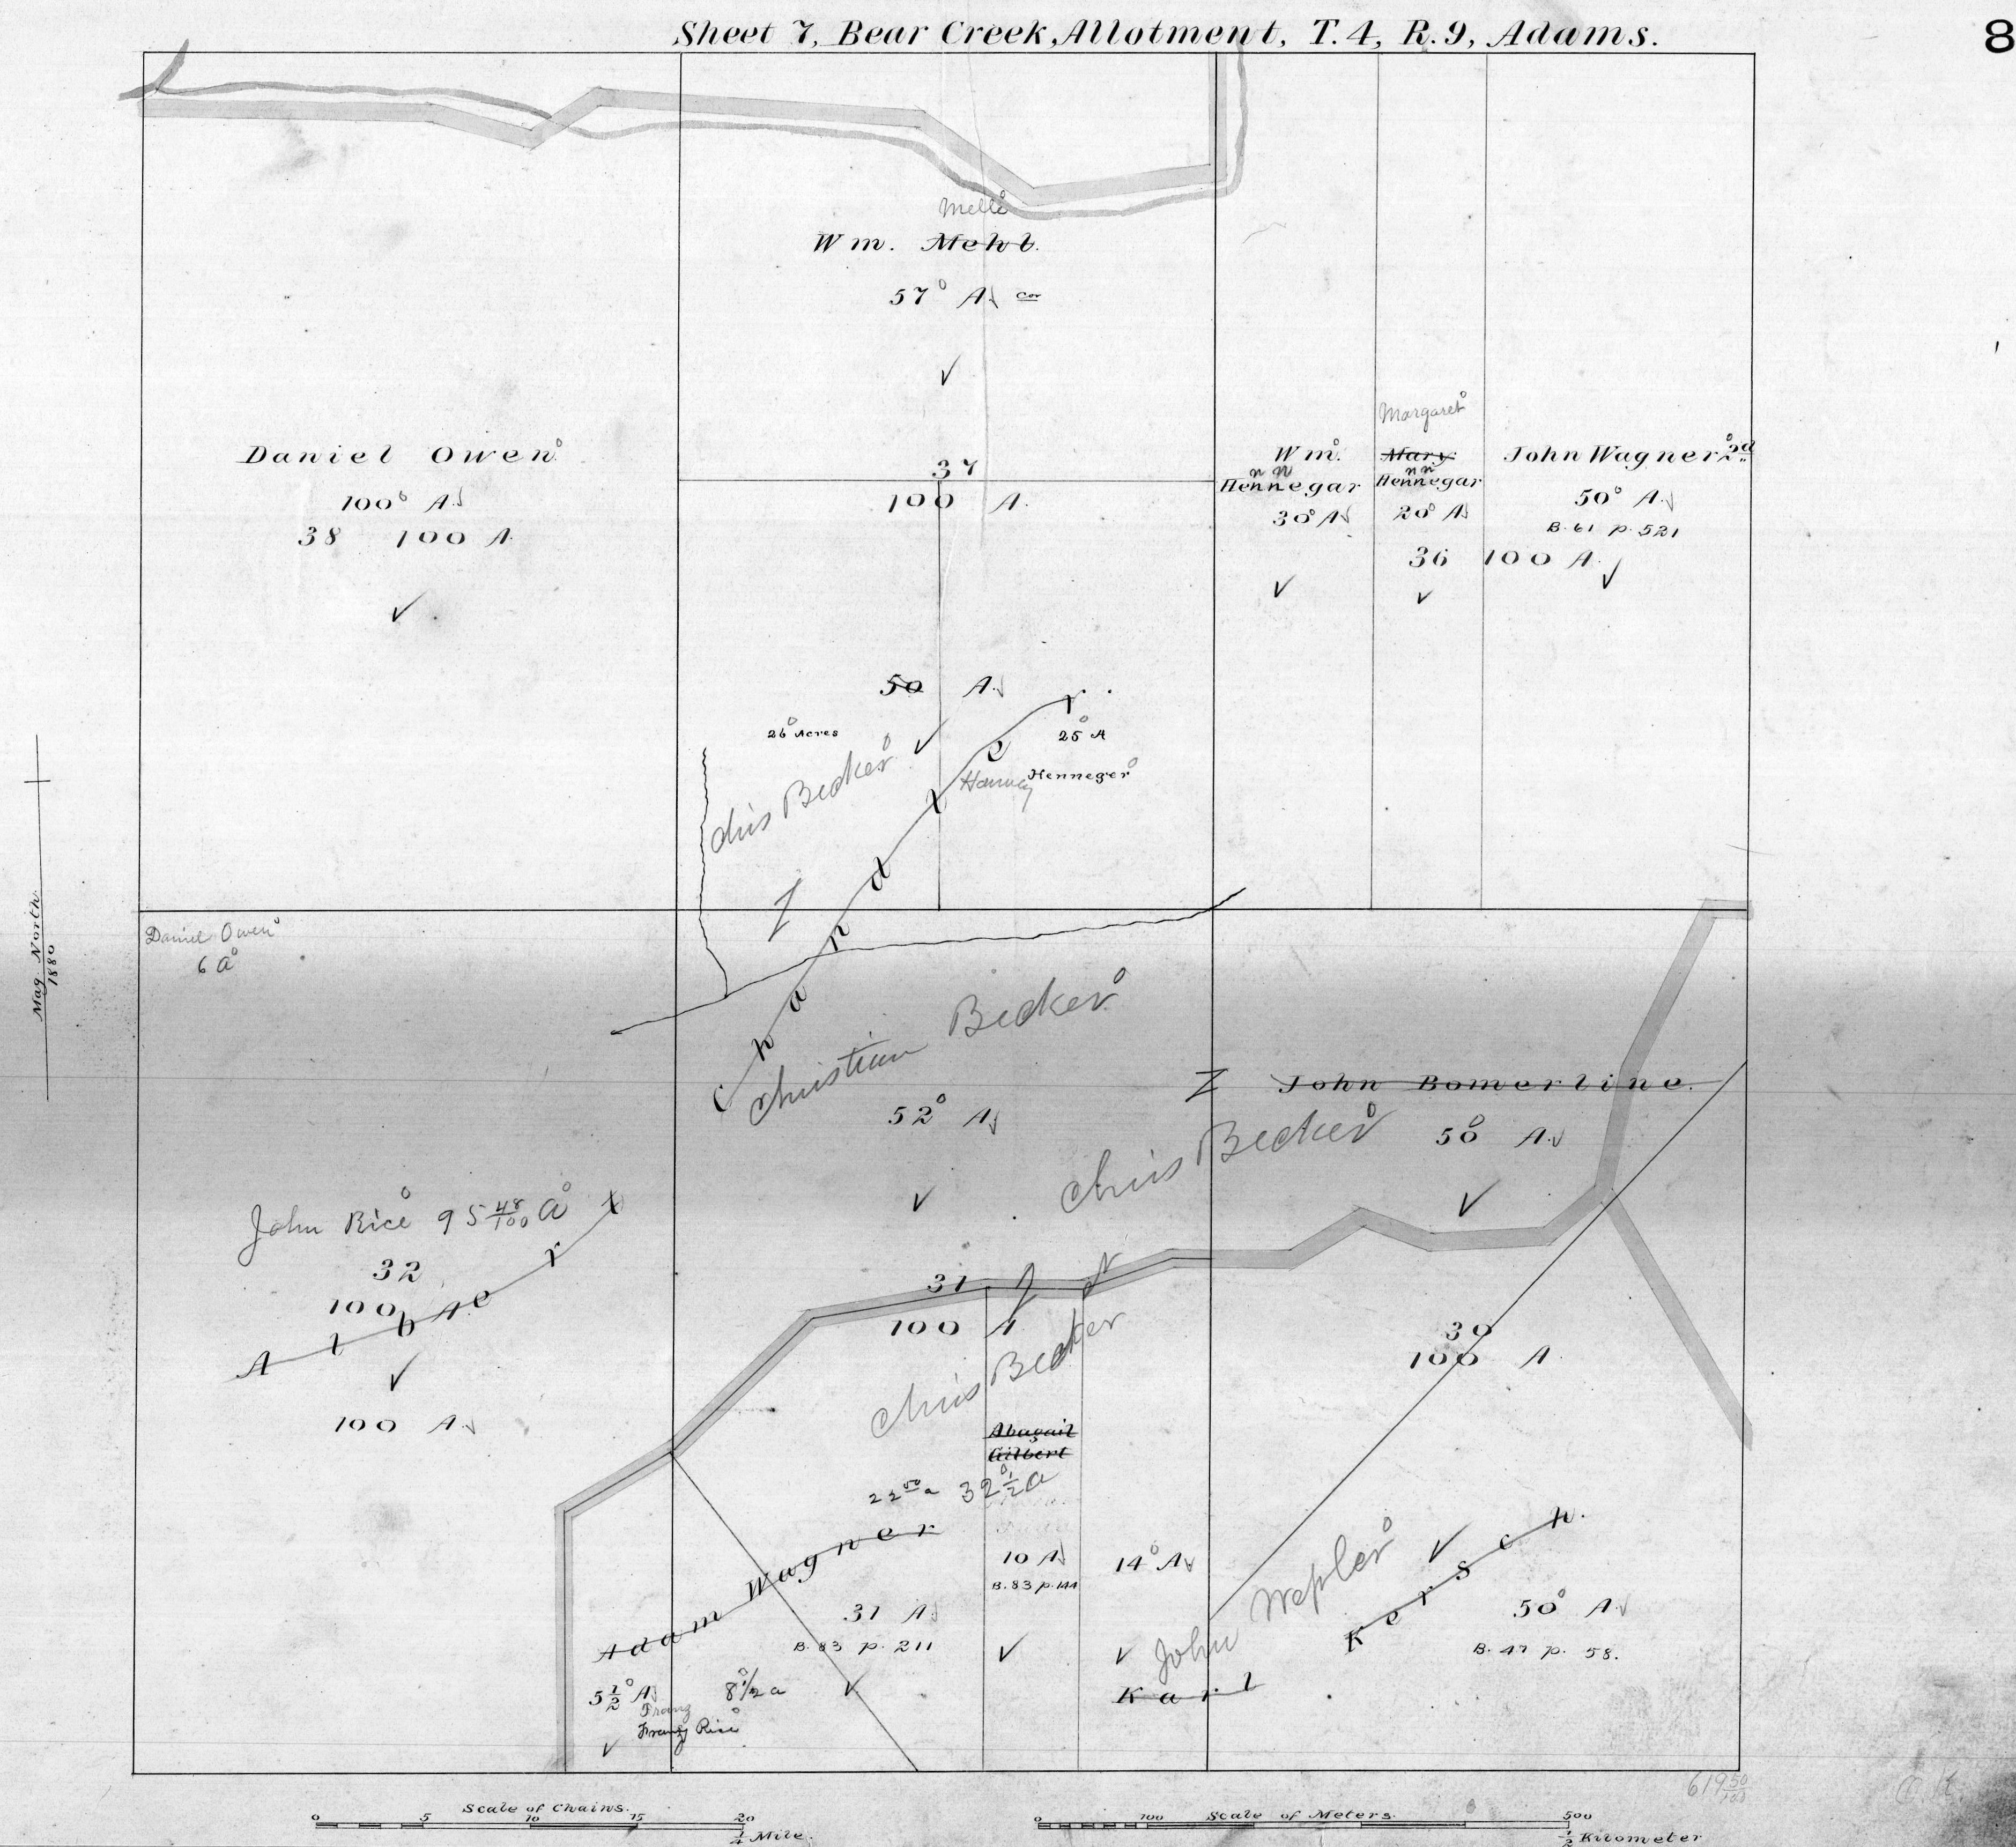 Sheet 7, Bear Creek, Allotment, T. 4, R. 9, Adams.
8
Melle
Wm. Mehl.
57 A. cor
Daniel Owen
100 A.
38 100 A
37
100 A.
Margaret
Wm.
Hennegar
30 A
Mary
Hennegar
20 A
John Wagner 2d
50 A.
B. 61 p. 521
36 100 A.
50 A.
26 Acres
25 A
Chris Becker
Henneger
Chandler
Daniel Owen
6 a
Mag. North
1880
Christian Becker
52 A
John Bomerline.
Chris Becker
50 A.
John Rice 95 48/100 a
32
100 A
Alber
100 A
31
100 A
Chris Becker
30
100 A
Abagail
Gilbert
22 50 a 32 1/2 a
Adam Wagner
10 A
B. 83 p. 144
14 A
31 A
B. 83 p. 211
John Wepler
Karl Kersch.
50 A.
B. 47 p. 58.
5 1/2 A
8 1/2 a
Franz
Franz Rice
619 50/100
Scale of Chains.
0 5 10 15 20
1/4 Mile.
Scale of Meters.
0 100 500
1/2 Kilometer